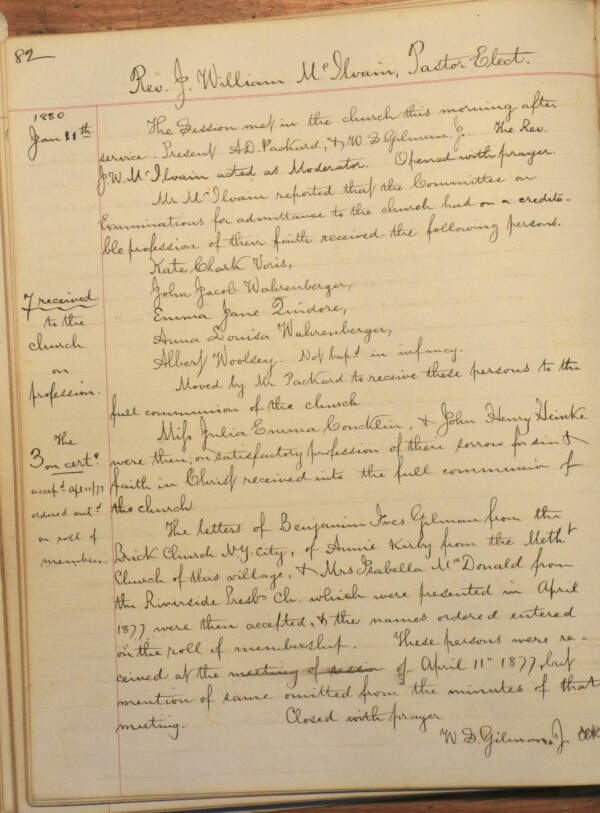 82
Rev. J. William McIlvain, Pastor Elect.
1880
Jan 11th
The Session met in the church this morning after
service. Present A.D. Packard, & W S Gilman Jr. The Rev.
J.W. McIlvain acted as Moderator. Opened with prayer.
Mr McIlvain reported that the Committee on
Examinations for admittance to the church had on a credita-
ble profession of their faith received the following persons.
Kate Clark Voris,
John Jacob Wahrenberger,
7 received
to the
church
on
profession.
Emma Jane Quidore,
Anna Louisa Wahrenberger,
Albert Woolsey. Not bapd in infancy.
Moved by Mr Packard to receive these persons to the
full communion of the church
Miss Julia Emma Concklin, & John Henry Heinke
were then, on satisfactory profession of their sorrow for sin &
faith in Christ received into the full communion of
the church
The
3 on certe
accepd Apl 11/77
ordered entd
on roll of
members.
The letters of Benjamin Ives Gilman from the
Brick Church N.Y. City, of Annie Kirby from the Metht
Church of this village, & Mrs Isabella McDonald from
the Riverside Presb Ch. which were presented in April
1877 were then accepted, & the names ordered entered
on the roll of membership. These persons were re-
ceived at the meeting of of April 11th 1877, but
mention of same omitted from the minutes of that
meeting. Closed with prayer
W. S. Gilman Jr Clk